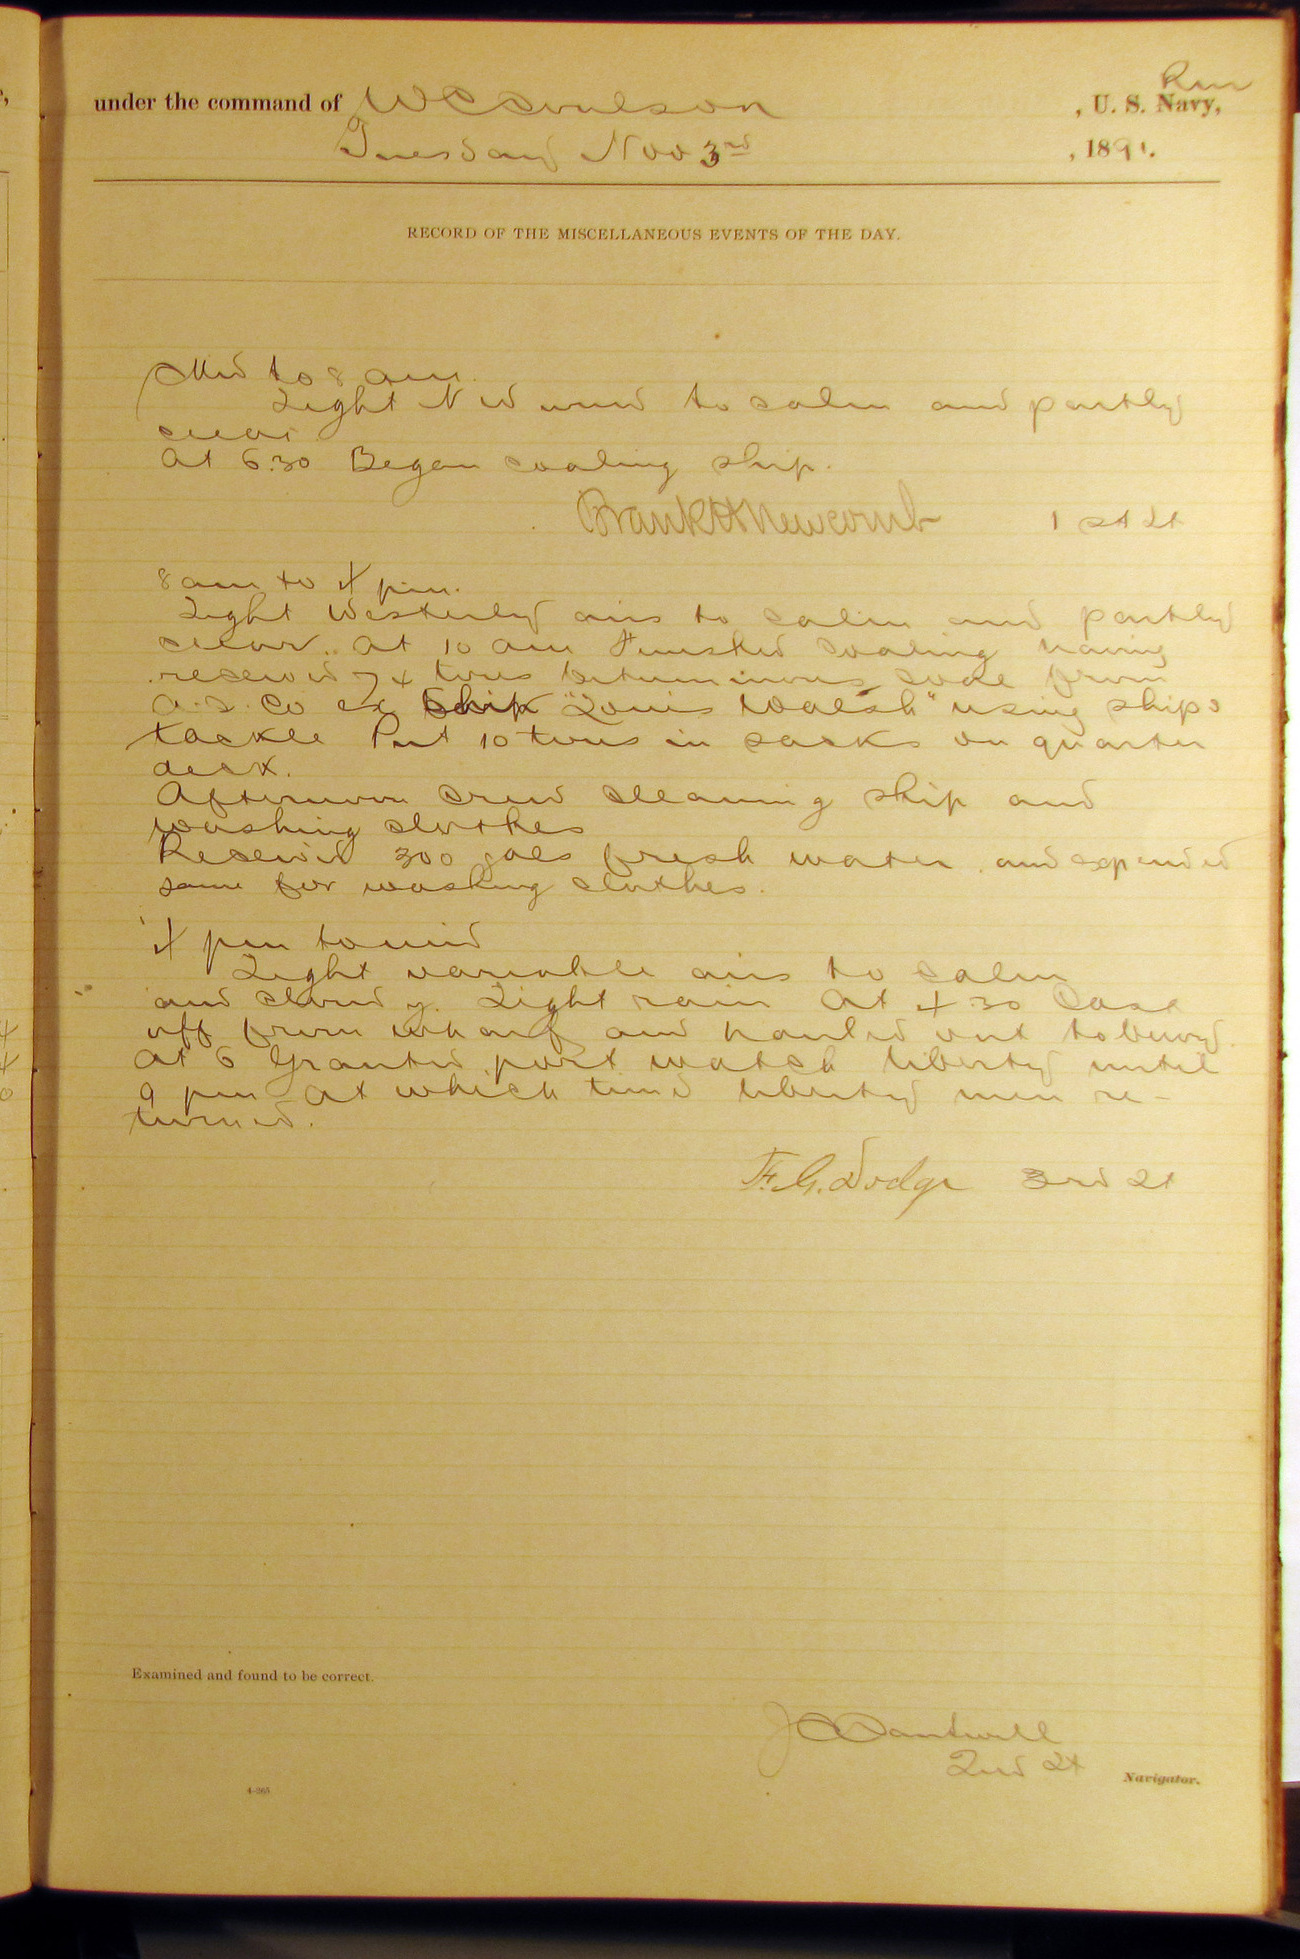 under the command of W C Coulson, U. S. Navy, Rm
Tuesday Nov 3rd, 1891.
RECORD OF THE MISCELLANEOUS EVENTS OF THE DAY.
Mid to 8 am.
Light N'd wind to calm and partly
clear.
At 6.30 Began coaling ship.
Frank H Newcomb 1st Lt
8 am to 4 pm.
Light Westerly airs to calm and partly
clear. At 10 am Finished coaling having
received 74 tons bituminous coal from
ex Ship "Louis Walsh" using ships
tackle Put 10 tons in sacks on quarter
deck.
Afternoon crew cleaning ship and
washing clothes
Received 300 gals fresh water and expended
same for washing clothes.
4 pm to mid
Light variable airs to calm
and cloudy. Light rain At 4.30 Cast
off from wharf and hauled out to buoy.
At 6 Granted port watch liberty until
9 pm At which time liberty men re-
turned.
F. G. Dodge 3rd Lt
Examined and found to be correct.
J C Cantwell
2nd Lt
Navigator.
4-265